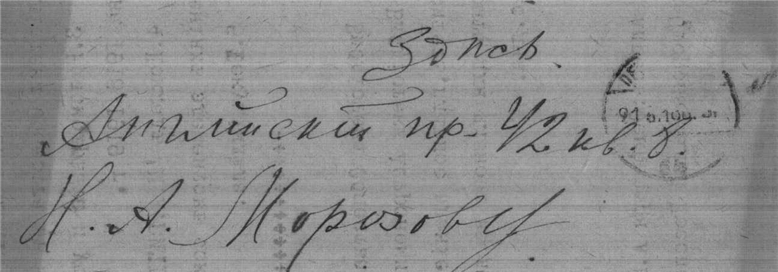 Здпсь.
Английский пр. 42 кв. 8.
Н. А. Морозову